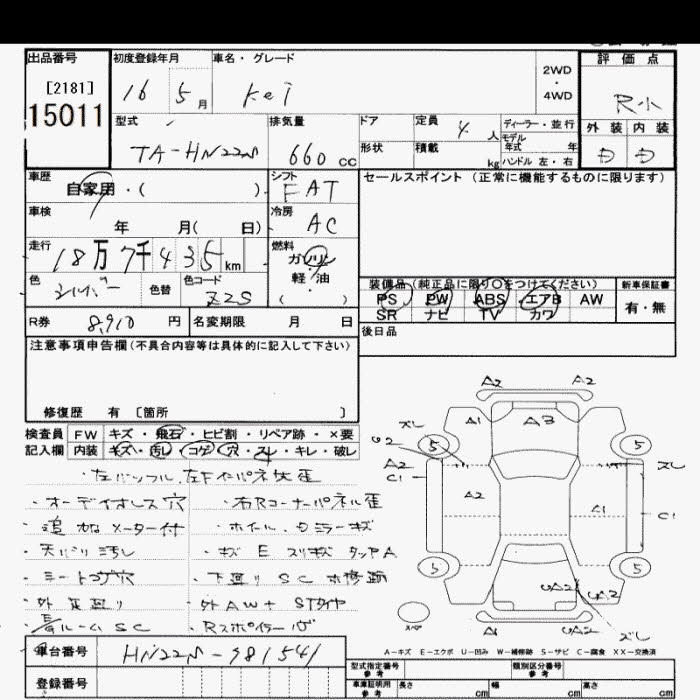 出品番号
[2181]
15011
初度登録年月
16 5 月
車名・グレード
Kei
2WD
・
4WD
評価点
R小
外装 内装
D D
型式
TA-HN22S
排気量
660 cc
ドア
形状
定員
4 人
積載
kg
ディーラー・並行
モデル
年式 年
ハンドル 左・右
車歴
自家用・( )
車検
年 月( 日)
シフト
FAT
冷房
AC
セールスポイント (正常に機能するものに限ります)
走行
18万7千435 km
燃料
ガソリン
軽・油
( )
色
シルバー
色替
色コード
Z2S
装備品(純正品に限り○をつけてください)
PS PW ABS エアB AW
SR ナビ TV カワ
新車保証書
有・無
R券 8,910 円
名変期限 月 日
後日品
注意事項申告欄(不具合内容等は具体的に記入して下さい)
修復歴 有 [箇所 ]
検査員
記入欄
FW キズ・飛石・ヒビ割・リペア跡・×要
内装 キズ・汚レ・コゲ・穴・スレ・キレ・破レ
・オーディオレス 穴
・右Rコーナーパネル歪
・追加メーター付
・天バリ汚レ
・シートコゲ穴
・下回り SC 補修跡
・外AW+STタイヤ
・Rスポイラー
A2 A2
A1 A3
ズレ
5 5
G2
A2
C1
ズレ
A2
A1
C1
5 5
UA2
UA2
A1 UA2
ズレ
スペア
A-キズ E-エクボ U-凹み W-補修跡 S-サビ C-腐食 XX-交換済
車台番号
HN22S-981541
登録番号
型式指定番号
参考
類別区分番号
参考
車庫証明用
参考
長さ cm
幅 cm
高さ cm